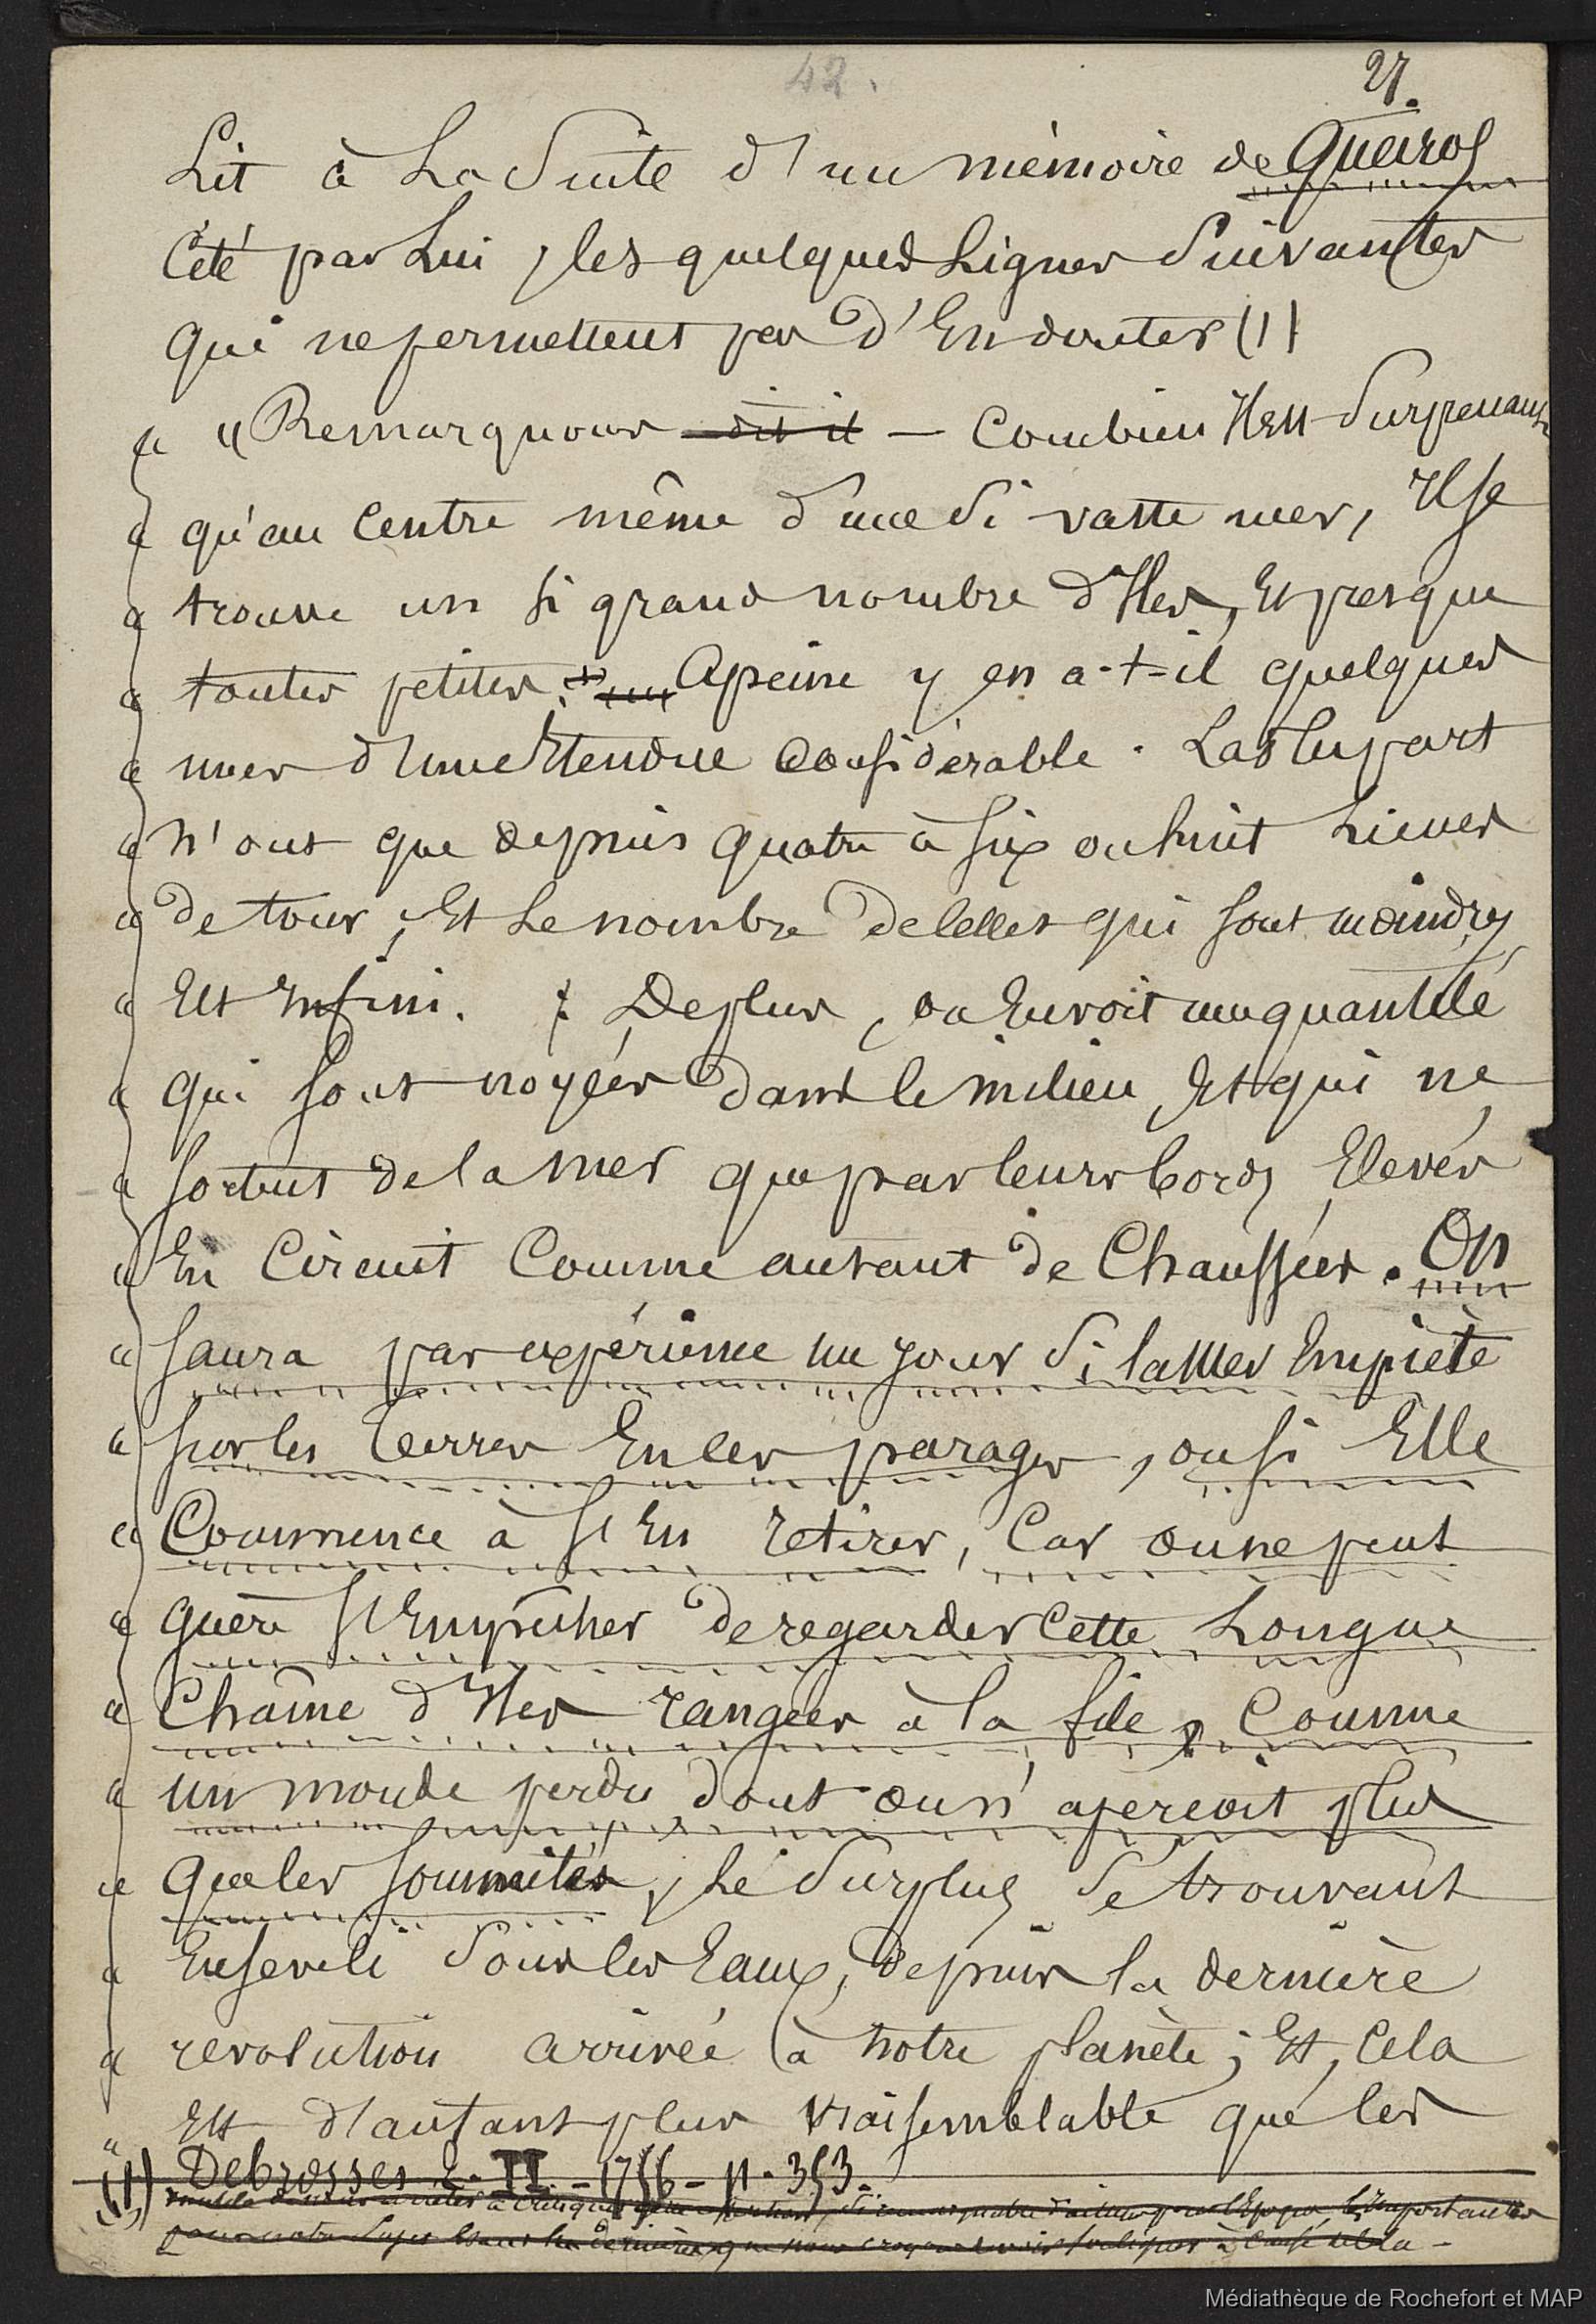 42.
27.
Lit à La Suite d'un mémoire de Queiros
Cité par Lui, les quelques Lignes Suivantes
qui ne permettent pas d'En douter (1)
" "Remarquons dit il — Combien Il Est Surprenant
" qu'au Centre même d'une Si vaste mer, Il se
" trouve un si grand nombre d'Iles, Et presque
" toutes petites. Apeine y en a-t-il quelques
" unes d'une Etendue Considérable. La Plupart
" n'ont que depuis quatre à six ou huit Lieues
" de tour, Et Le nombre de Celles qui sont moindres
" Est Infini. De plus, on En voit une quantité
" qui sont noyées dans le milieu, Et qui ne
" sortent de la mer que par leurs bords Elevés
" En Circuit Comme autant de Chaussées. On
" saura par expérience un jour Si la Mer Empiète
" sur les terres En Ces parages, ou si Elle
" Commence à s'En retirer, Car on ne peut
" guère s'Empêcher de regarder Cette Longue
" Chaîne d'Iles rangées à la file, Comme
" un monde perdu dont on n'aperçoit plus
" que les sommités, Le Surplus Se trouvant
" Enseveli Sous les Eaux, depuis la dernière
" revolution arrivée à notre planète; Et, Cela
" Est d'autant plus vraisemblable que les
(1) Debrosses t. II - 1756 - p. 353.
(1)
pour notre Sujet dernières que nous croyons devoir souligner à Cause de Cela -
Médiathèque de Rochefort et MAP